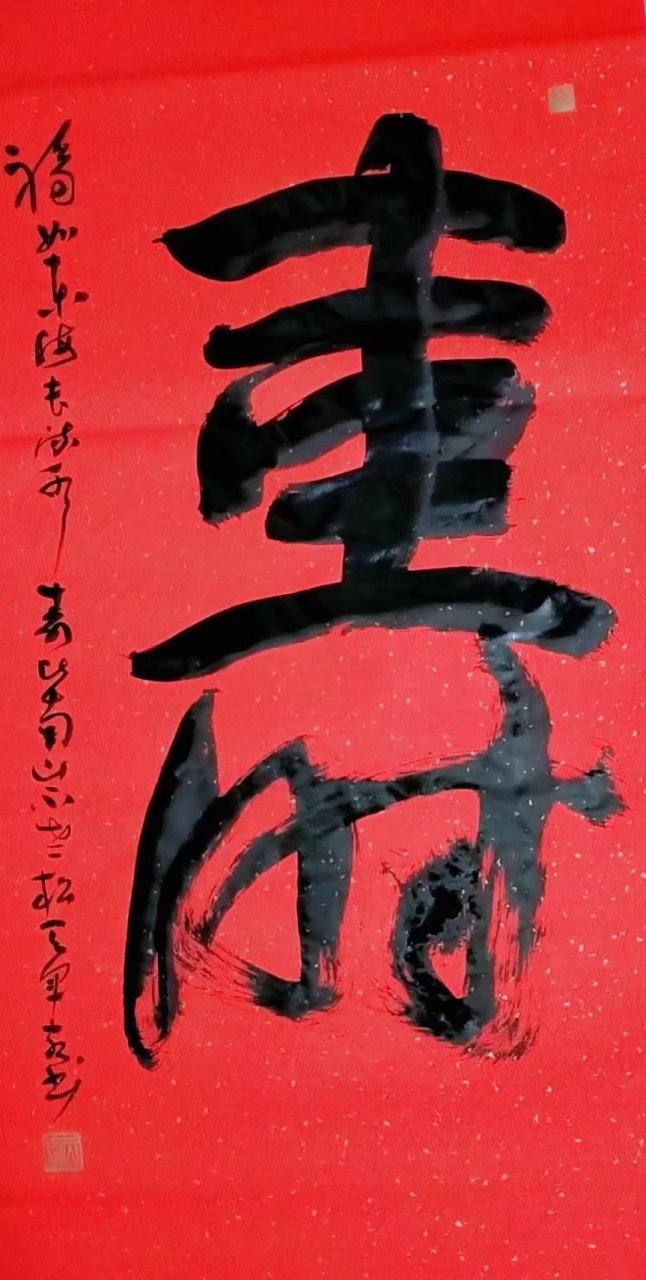 壽
福如东海长流水 寿比南山不老松